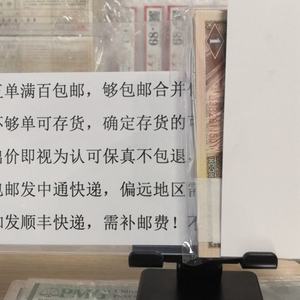 单满百包邮,够包邮合并
够单可存货,确定存货的
价即视为认可保真不包退,
邮发中通快递,偏远地区需
发顺丰快递,需补邮费!不
68-
1
PMG